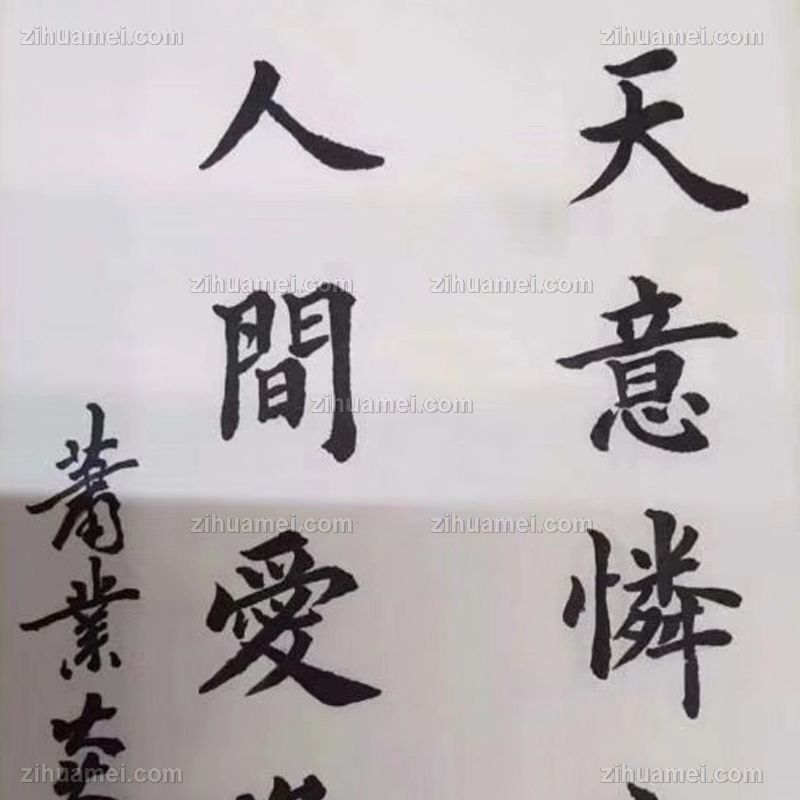 天意憐
人間愛
蕭業
zihuamei.com zihuamei.com
zihuamei.com zihuamei.com
zihuamei.com
zihuamei.com zihuamei.com
zihuamei.com zihuamei.com